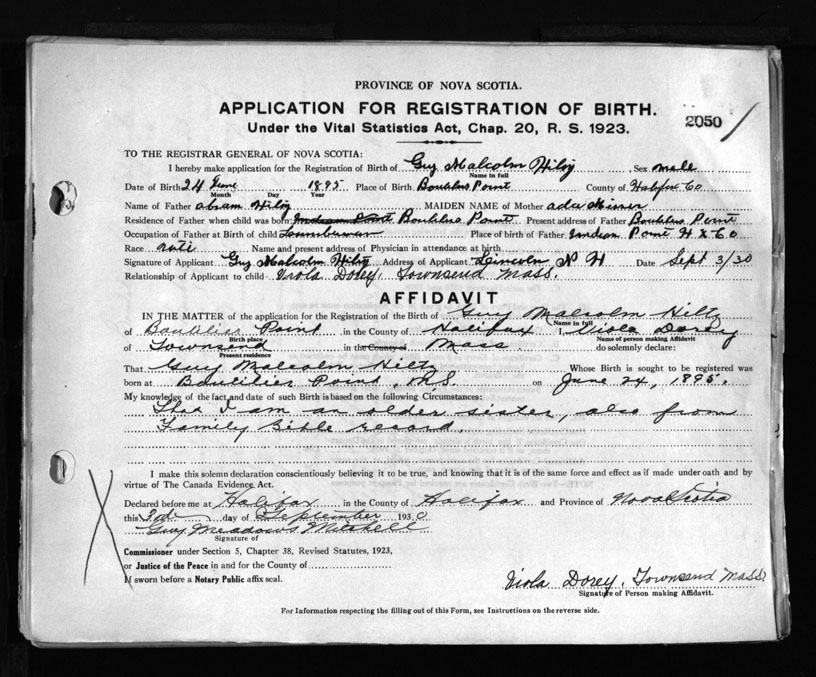 PROVINCE OF NOVA SCOTIA.
APPLICATION FOR REGISTRATION OF BIRTH.
2050
Under the Vital Statistics Act, Chap. 20, R. S. 1923.
TO THE REGISTRAR GENERAL OF NOVA SCOTIA:
I hereby make application for the Registration of Birth of Guy Malcolm Hiltz Sex male
Name in full
Date of Birth 24 June 1895 Place of Birth Boutiliers Point County of Halifax Co
Month Day Year
Name of Father abram Hiltz MAIDEN NAME of Mother ada
Residence of Father when child was born Boutiliers Point Present address of Father Boutiliers Point
Occupation of Father at Birth of child Lumberman Place of birth of Father Indian Point H X Co
Race Name and present address of Physician in attendance at birth
Signature of Applicant Guy Malcolm Hiltz Address of Applicant Lincoln N H Date Sept 3/30
Relationship of Applicant to child Viola Dorey, Townsend Mass.
AFFIDAVIT
IN THE MATTER of the application for the Registration of the Birth of Guy Malcolm Hiltz
Name in full
of Boutilier Point in the County of Halifax I, Viola Dorey
Birth place Name of person making Affidavit
of Townsend in the County of Mass do solemnly declare:
Present residence
That Guy Malcolm Hiltz Whose Birth is sought to be registered was
born at Boutilier Point, N.S. on June 24, 1895.
My knowledge of the fact and date of such Birth is based on the following Circumstances:
That I am an older sister, also from
Family Bible record.
I make this solemn declaration conscientiously believing it to be true, and knowing that it is of the same force and effect as if made under oath and by
virtue of The Canada Evidence Act.
Declared before me at Halifax in the County of Halifax and Province of Nova Scotia
this 3rd day of September 1930
Guy Meadows Mitchell
Signature of
Commissioner under Section 5, Chapter 38, Revised Statutes, 1923,
or Justice of the Peace in and for the County of
If sworn before a Notary Public affix seal.
Viola Dorey, Townsend Mass.
Signature of Person making Affidavit.
For Information respecting the filling out of this Form, see Instructions on the reverse side.